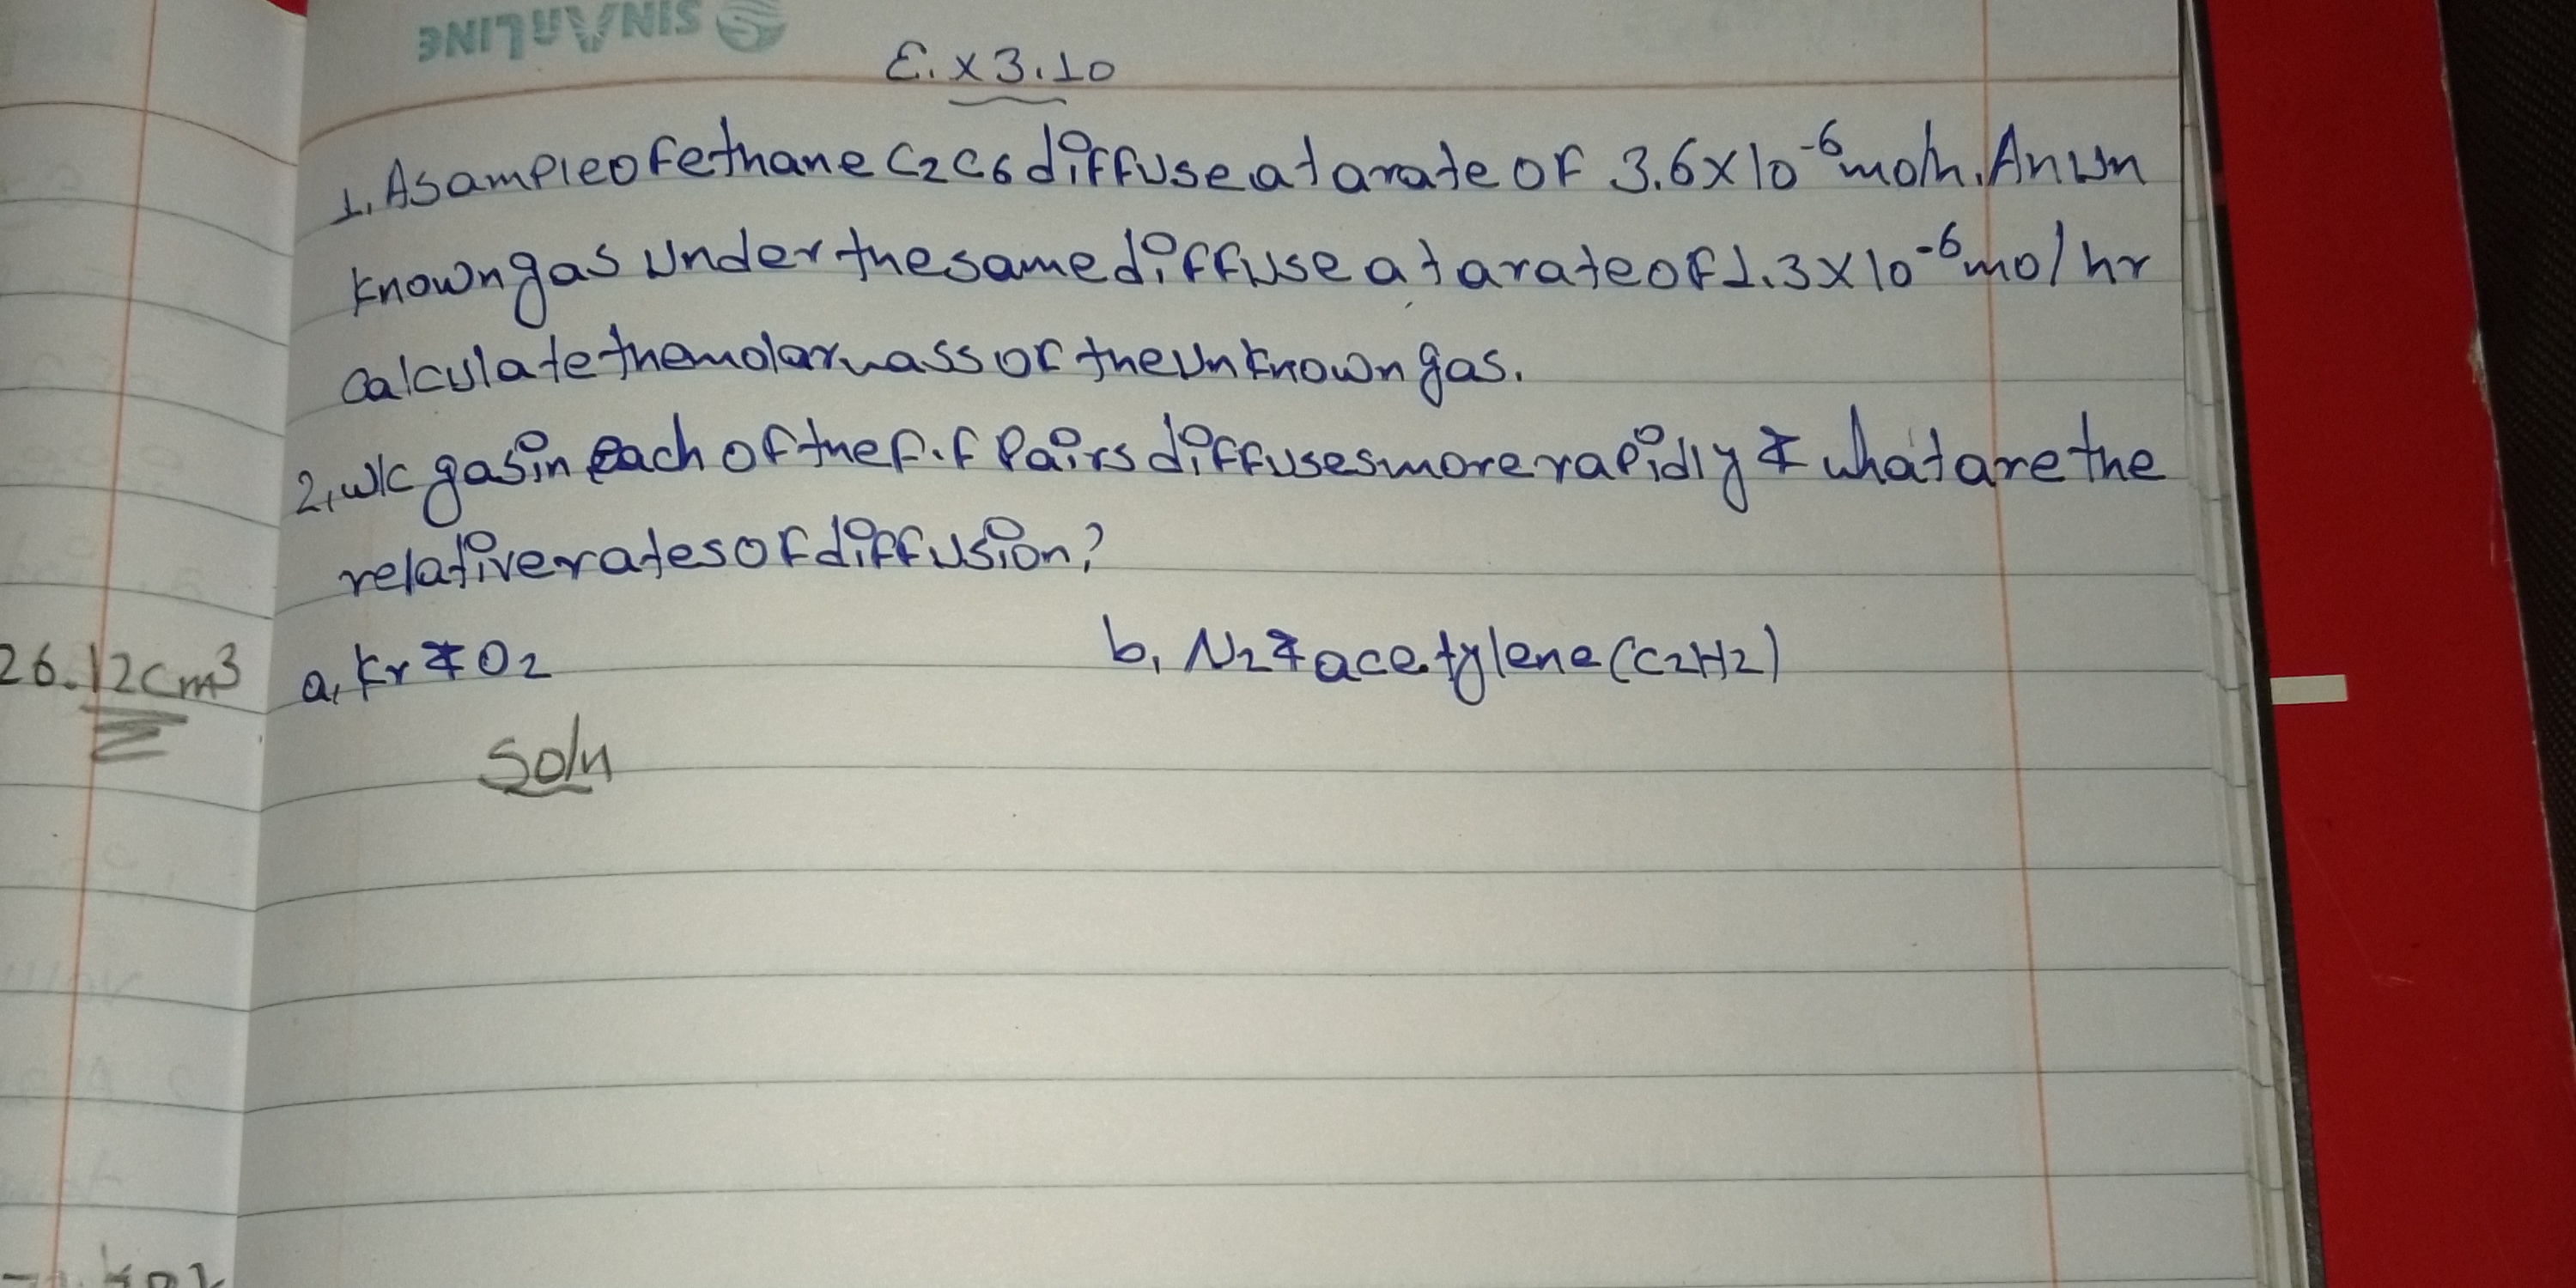 SINARLINE
E.x 3.10
1. A sample of ethane C2C6 diffuse at a rate of 3.6x10-6 mol/h. An un
known gas under the same diffuse at a rate of 1.3x10-6 mol/hr
calculate the molar mass of the unknown gas.
2, w/c gas in each of the f.f Pairs diffuses more rapidly & what are the
relative rates of diffusion?
26.12cm3
a, Kr & O2 b, N2 & acetylene (C2H2)
Soln